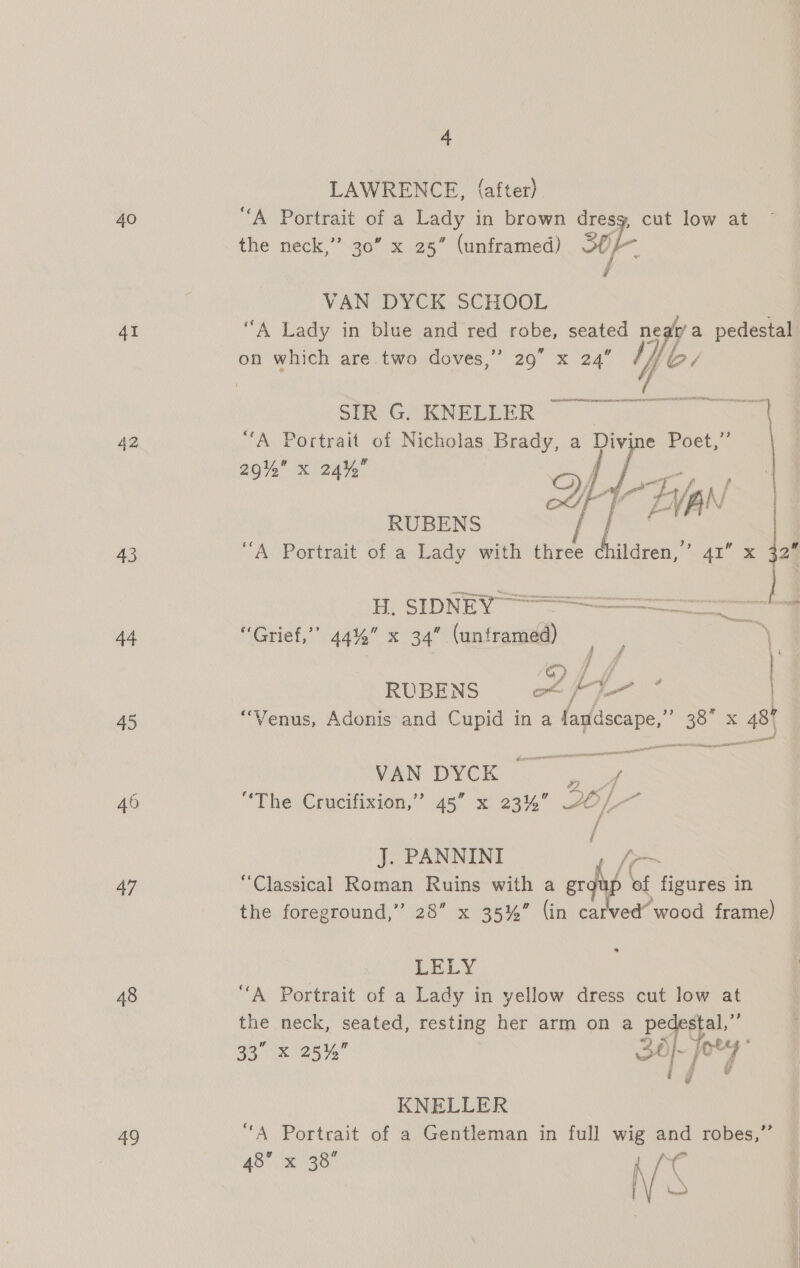 4
LAWRENCE, (after)
40 “A Portrait of a Lady in brown dress, cut low at
the neck,” 30" x 25" (unframed) 30/-
VAN DYCK SCHOOL
41 “A Lady in blue and red robe, seated near a pedestal
on which are two doves,” 29" x 24"
SIR G. KNELLER
42 “A Portrait of Nicholas Brady, a Divine Poet,”
29½" x 24½"
RUBENS
43 “A Portrait of a Lady with three children,” 41" x 32"
H. SIDNEY
44 “Grief,” 44½" x 34" (unframed)
RUBENS
45 “Venus, Adonis and Cupid in a landscape,” 38" x 48"
VAN DYCK
46 “The Crucifixion,” 45" x 23½" 20/-
J. PANNINI
47 “Classical Roman Ruins with a group of figures in
the foreground,” 28" x 35½" (in carved wood frame)
LELY
48 “A Portrait of a Lady in yellow dress cut low at
the neck, seated, resting her arm on a pedestal,”
33" x 25½" 30/-
KNELLER
49 “A Portrait of a Gentleman in full wig and robes,”
48" x 38" NS